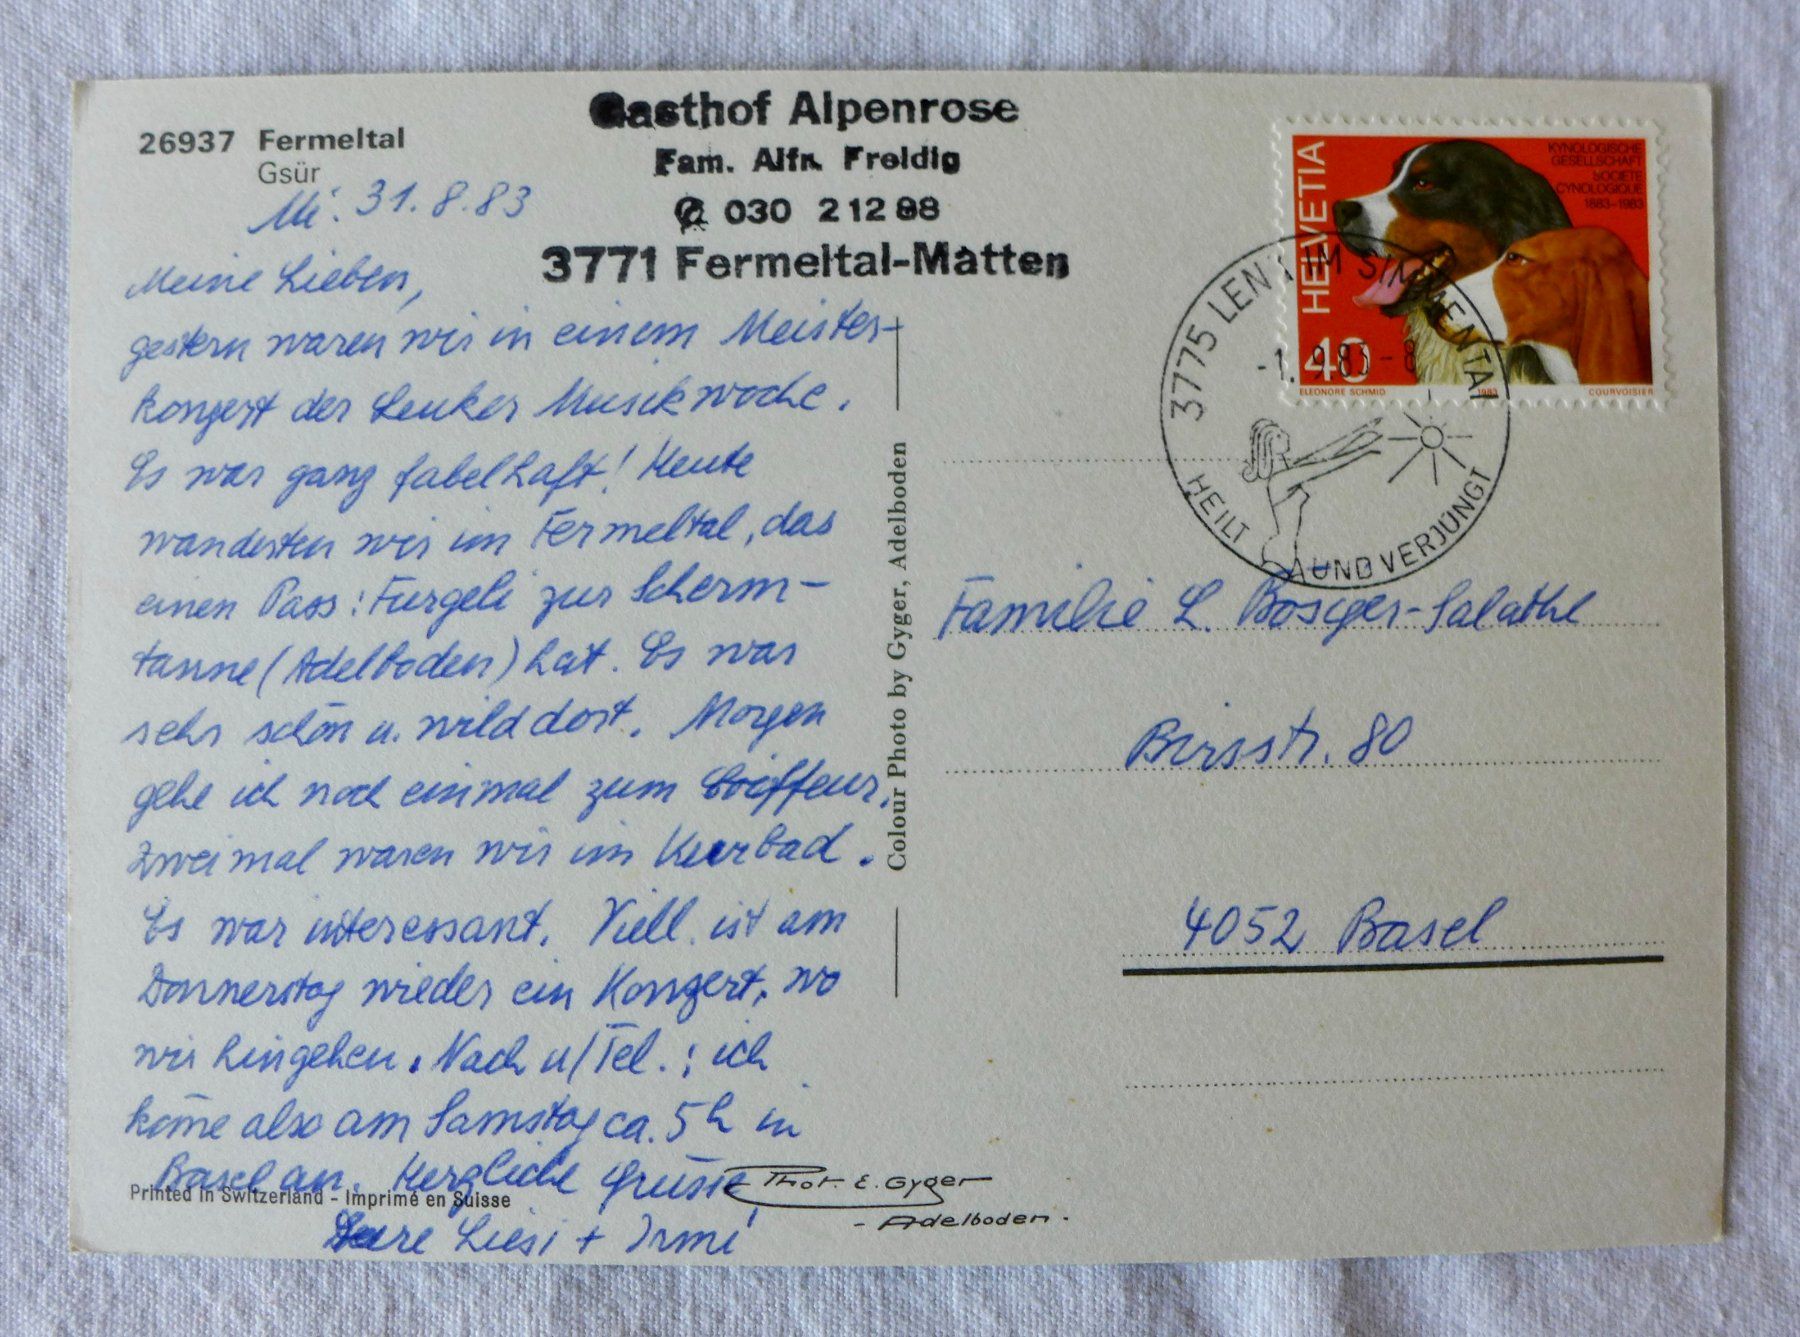 26937 Fermeltal
Gsür
Gasthof Alpenrose
Fam. Alfr. Freidig
030 2 12 88
3771 Fermeltal-Matten
Mi. 31.8.83
Meine Lieben,
gestern waren wir in einem Meister-
konzert der Lenker Musikwoche.
Es war ganz fabelhaft! Heute
wanderten wir im Fermeltal, das
einen Pass: Furgeli zur Scherm-
tanne (Adelboden) hat. Es war
sehr schön u. wild dort. Morgen
gehe ich noch einmal zum Coiffeur.
Zweimal waren wir im Kurbad.
Es war interessant. Viell. ist am
Donnerstag wieder ein Konzert, wo
wir hingehen. Nach u/Tel.: ich
kom̄e also am Samstag ca. 5 h in
Basel an. Herzliche Grüsse,
Eure Liesi + Irmi
Printed in Switzerland - Imprimé en Suisse
Colour Photo by Gyger, Adelboden
Phot. E. Gyger
- Adelboden -
HELVETIA
40
KYNOLOGISCHE
GESELLSCHAFT
SOCIETE
CYNOLOGIQUE
1883-1983
ELEONORE SCHMID
1983
COURVOISIER
3775 LENK IM SIMMENTAL
-1.9.83-8
HEILT UND VERJÜNGT
Familie L. Bosiger-Salathe
Birsstr. 80
4052 Basel